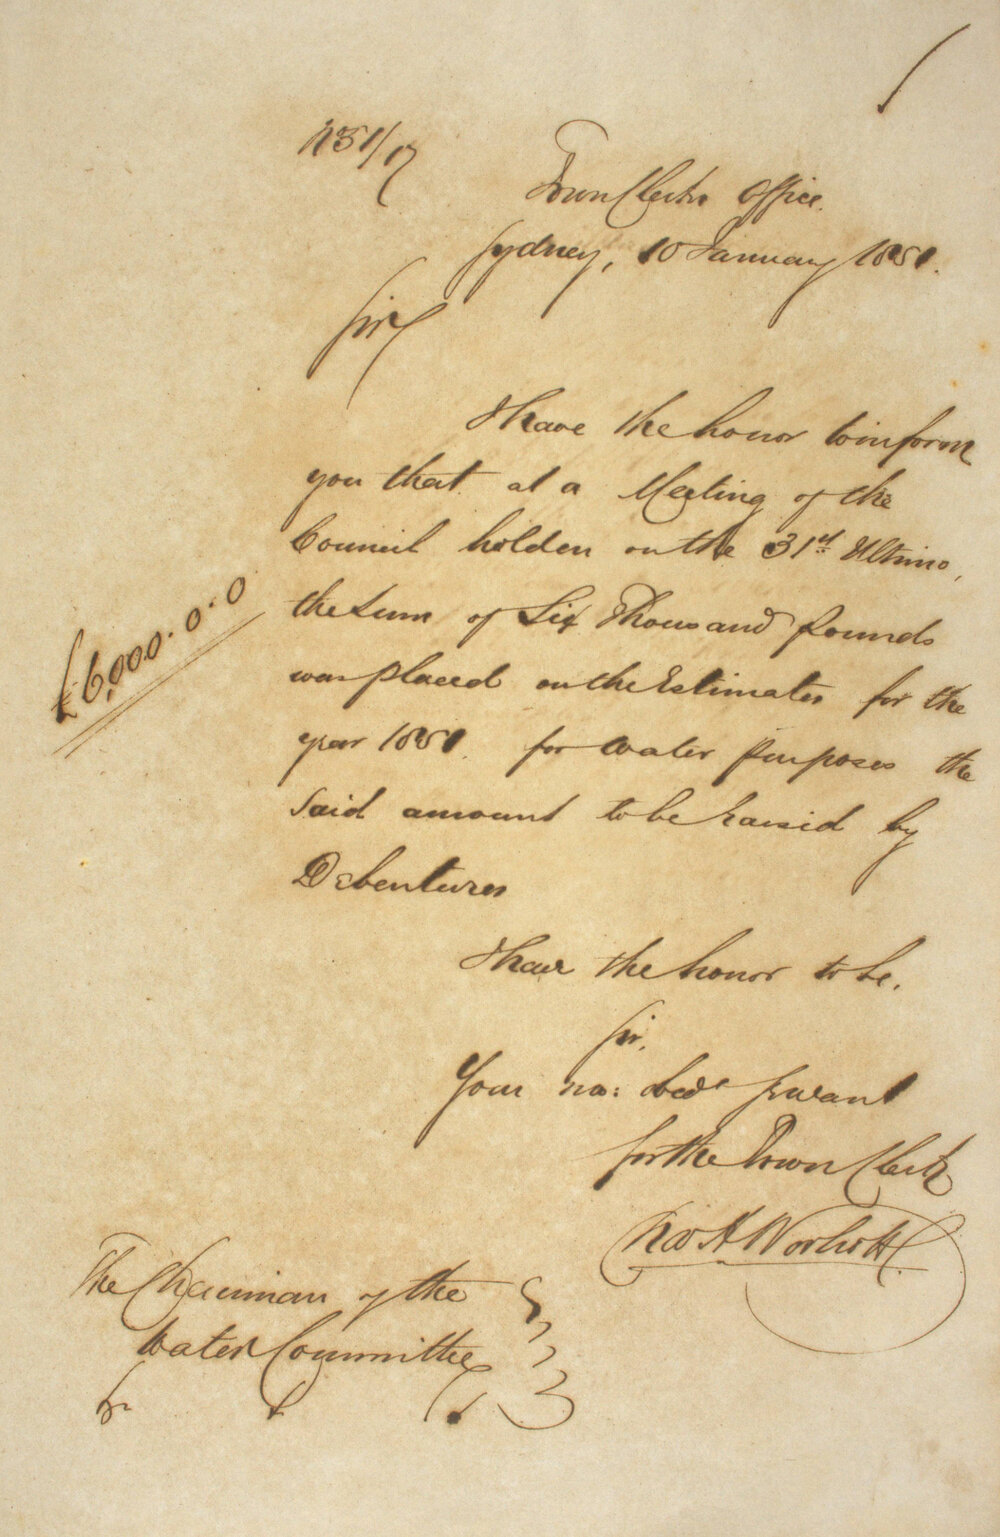 Town Clerks Office.
Sydney, 10 January 1851.
Sir
I have the honor to inform
you that at a Meeting of the
Council holden on the 31st Ultimo,
the Sum of Six Thousand pounds
£6,000.0.0
was placed on the Estimates for the
year 1851. for Water purposes the
Said amount to be raised by
Debentures
I have the honor to be.
Sir.
Your mo: obedt Servant
for the Town Clerk
The Chairman of the
Water Committee